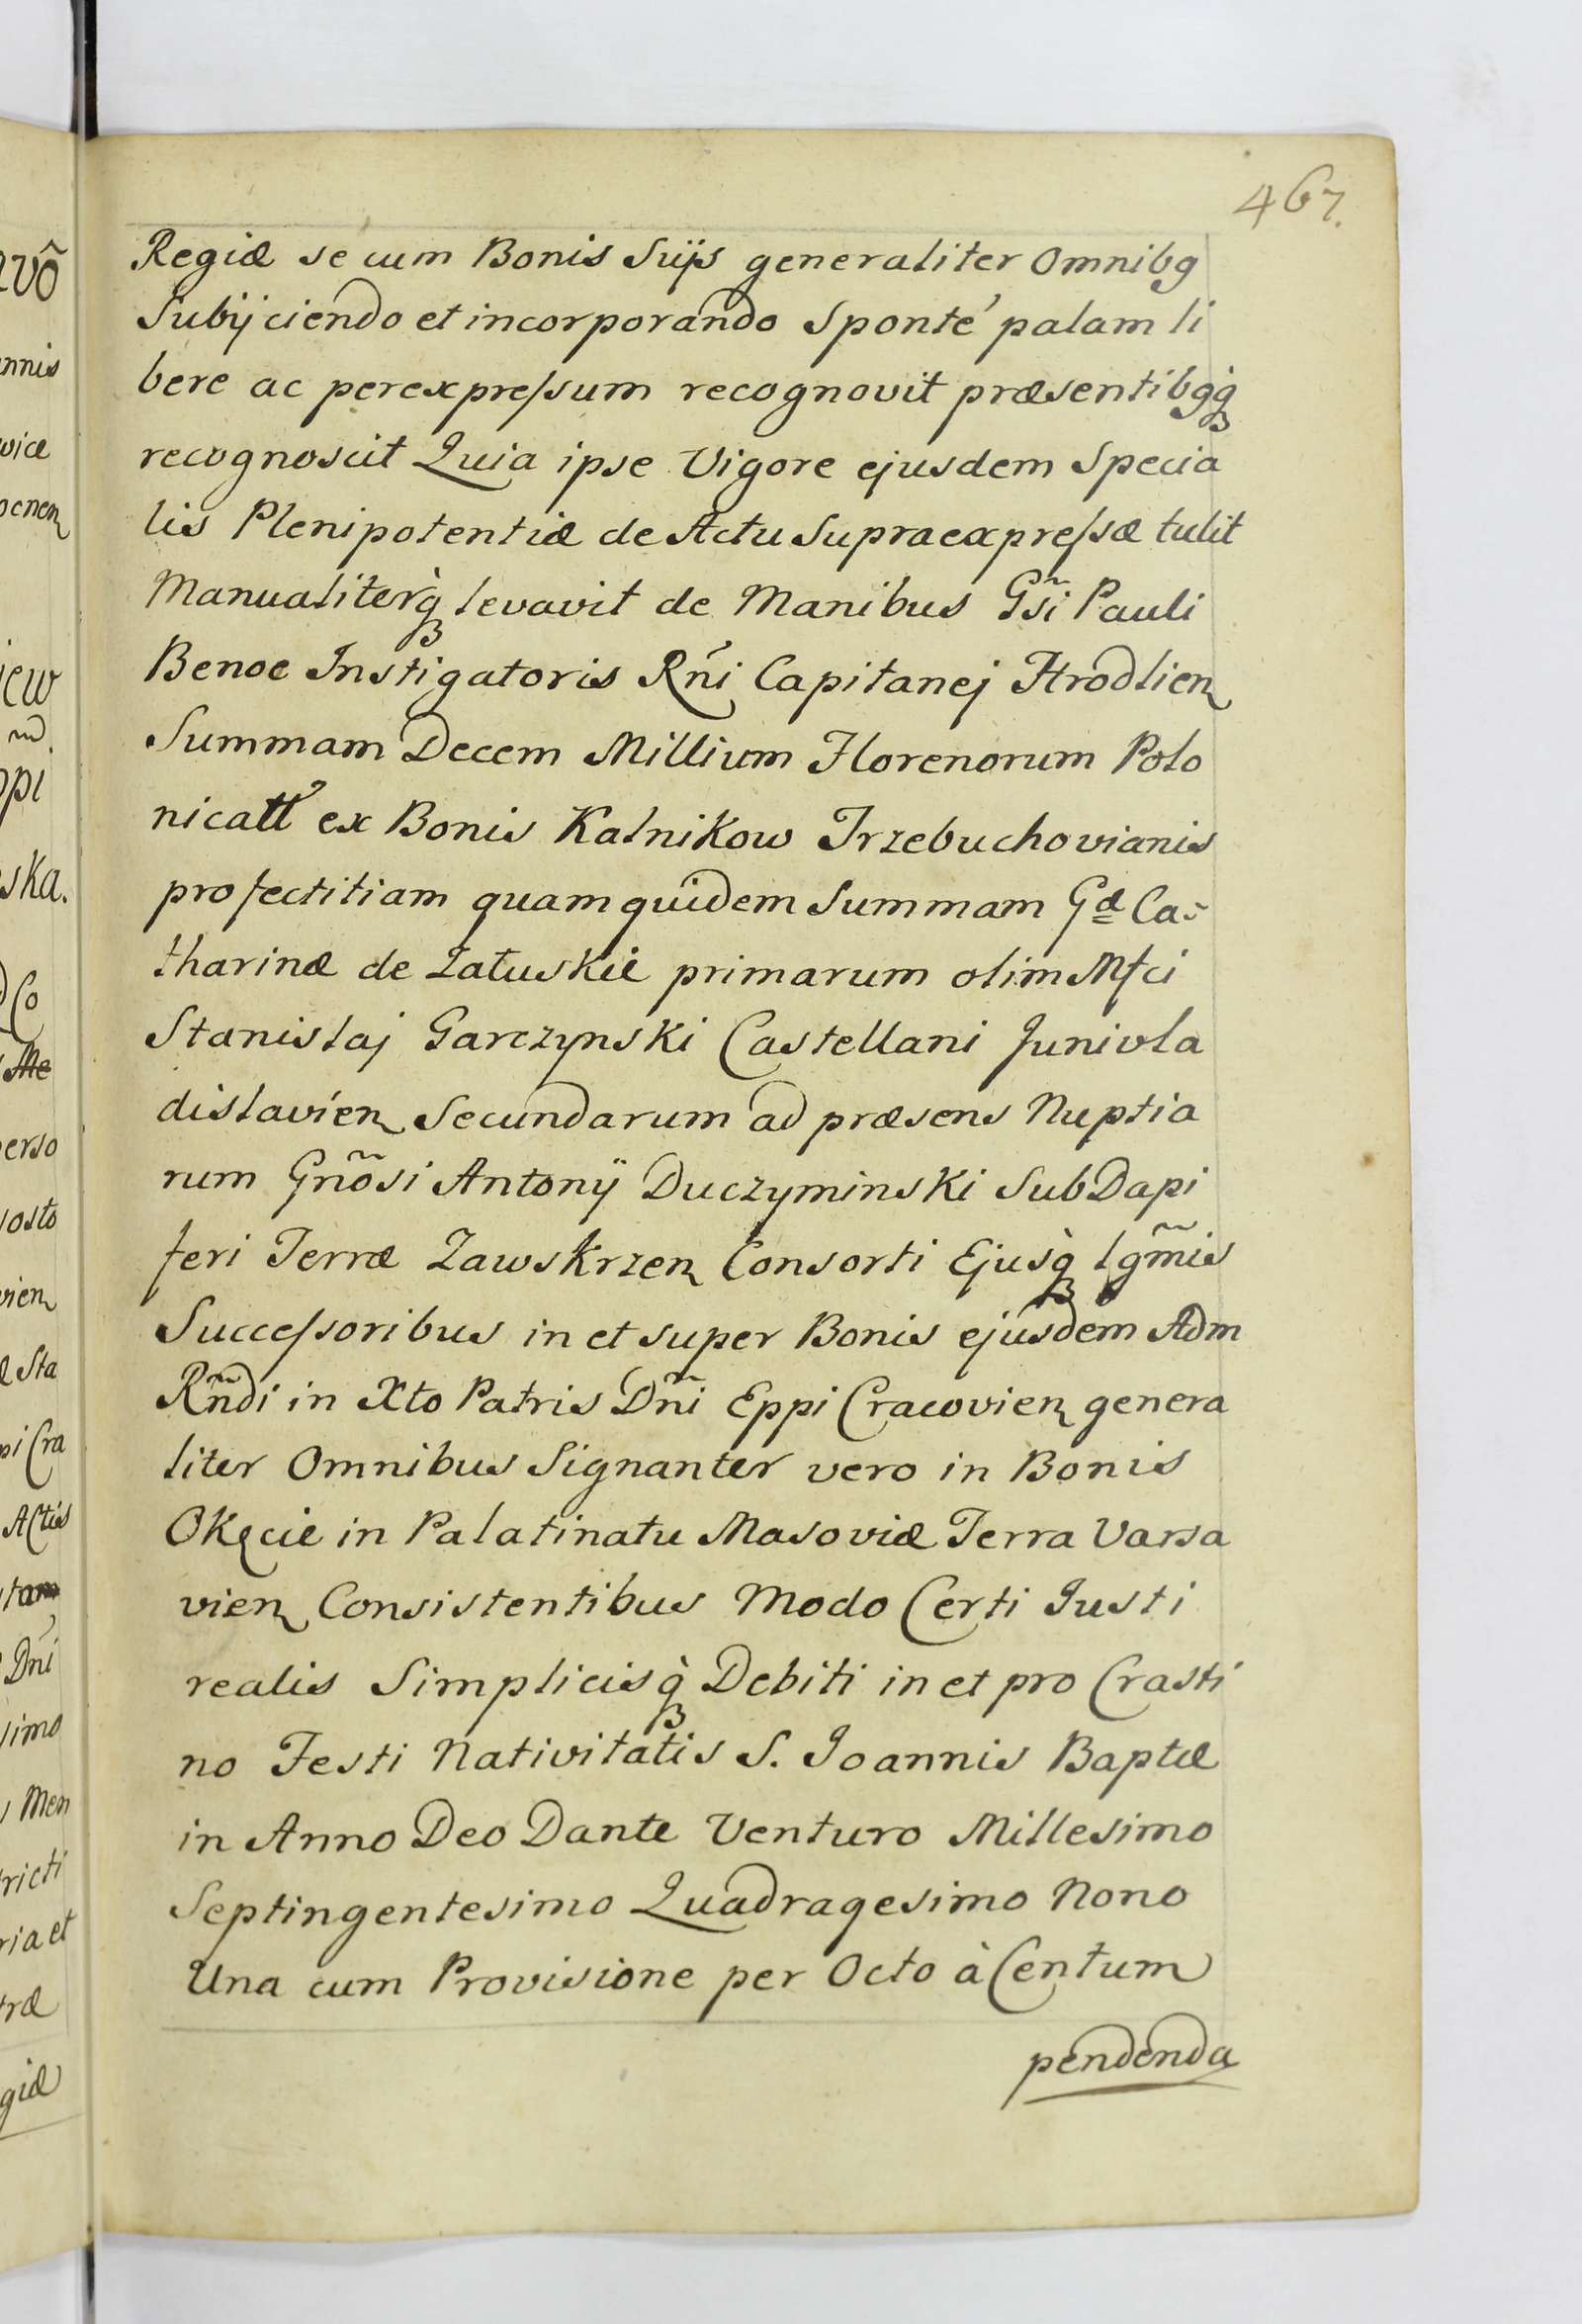 467.
Regiæ se cum Bonis Suÿs generaliter Omnibg
Subÿciendo et incorporando Sponté palam li
bere ac perexpreſsum recognovit præsentibgq̀ꝫ
recognoscit Quia ipse Vigore ejusdem Specia
lis Plenipotentiæ de Actu Supraexpreſsæ tulit
Manualiterq̀ꝫ levavit de Manibus Gs̃i Pauli
Benoe Instigatoris Rńi Capitanej Hrodlien
Summam Decem Millium Florenorum Polo
nicall ex Bonis Kalnikow Trzebuchovianis
profectitiam quam quidem Summam Gæ Ca-
tharinæ de Załuskie primarum olim Mfci
Stanislaj Garczynski Castellani Junivla
dislavien Secundarum ad præsens Nuptia
rum Gnõsi Antonÿ Duczyminski SubDapi
feri Terræ Zawskrzen Consorti Ejusq̀ꝫ lgm̃is
Succeſsoribus in et super Bonis ejusdem Adm
Rñdi in Xto Patris Dñi Eppi Cracovien genera
liter Omnibus Signanter vero in Bonis
Okęcie in Palatinatu Masoviæ Terra Varsa
vien Consistentibus Modo Certi Justi
realis Simplicisq̀ꝫ Debiti in et pro Crasti
no Festi Nativitatis S. Joannis Baptæ
in Anno Deo Dante Venturo Millesimo
Septingentesimo Quadragesimo Nono
Una cum Provisione per Octo à Centum
pendenda